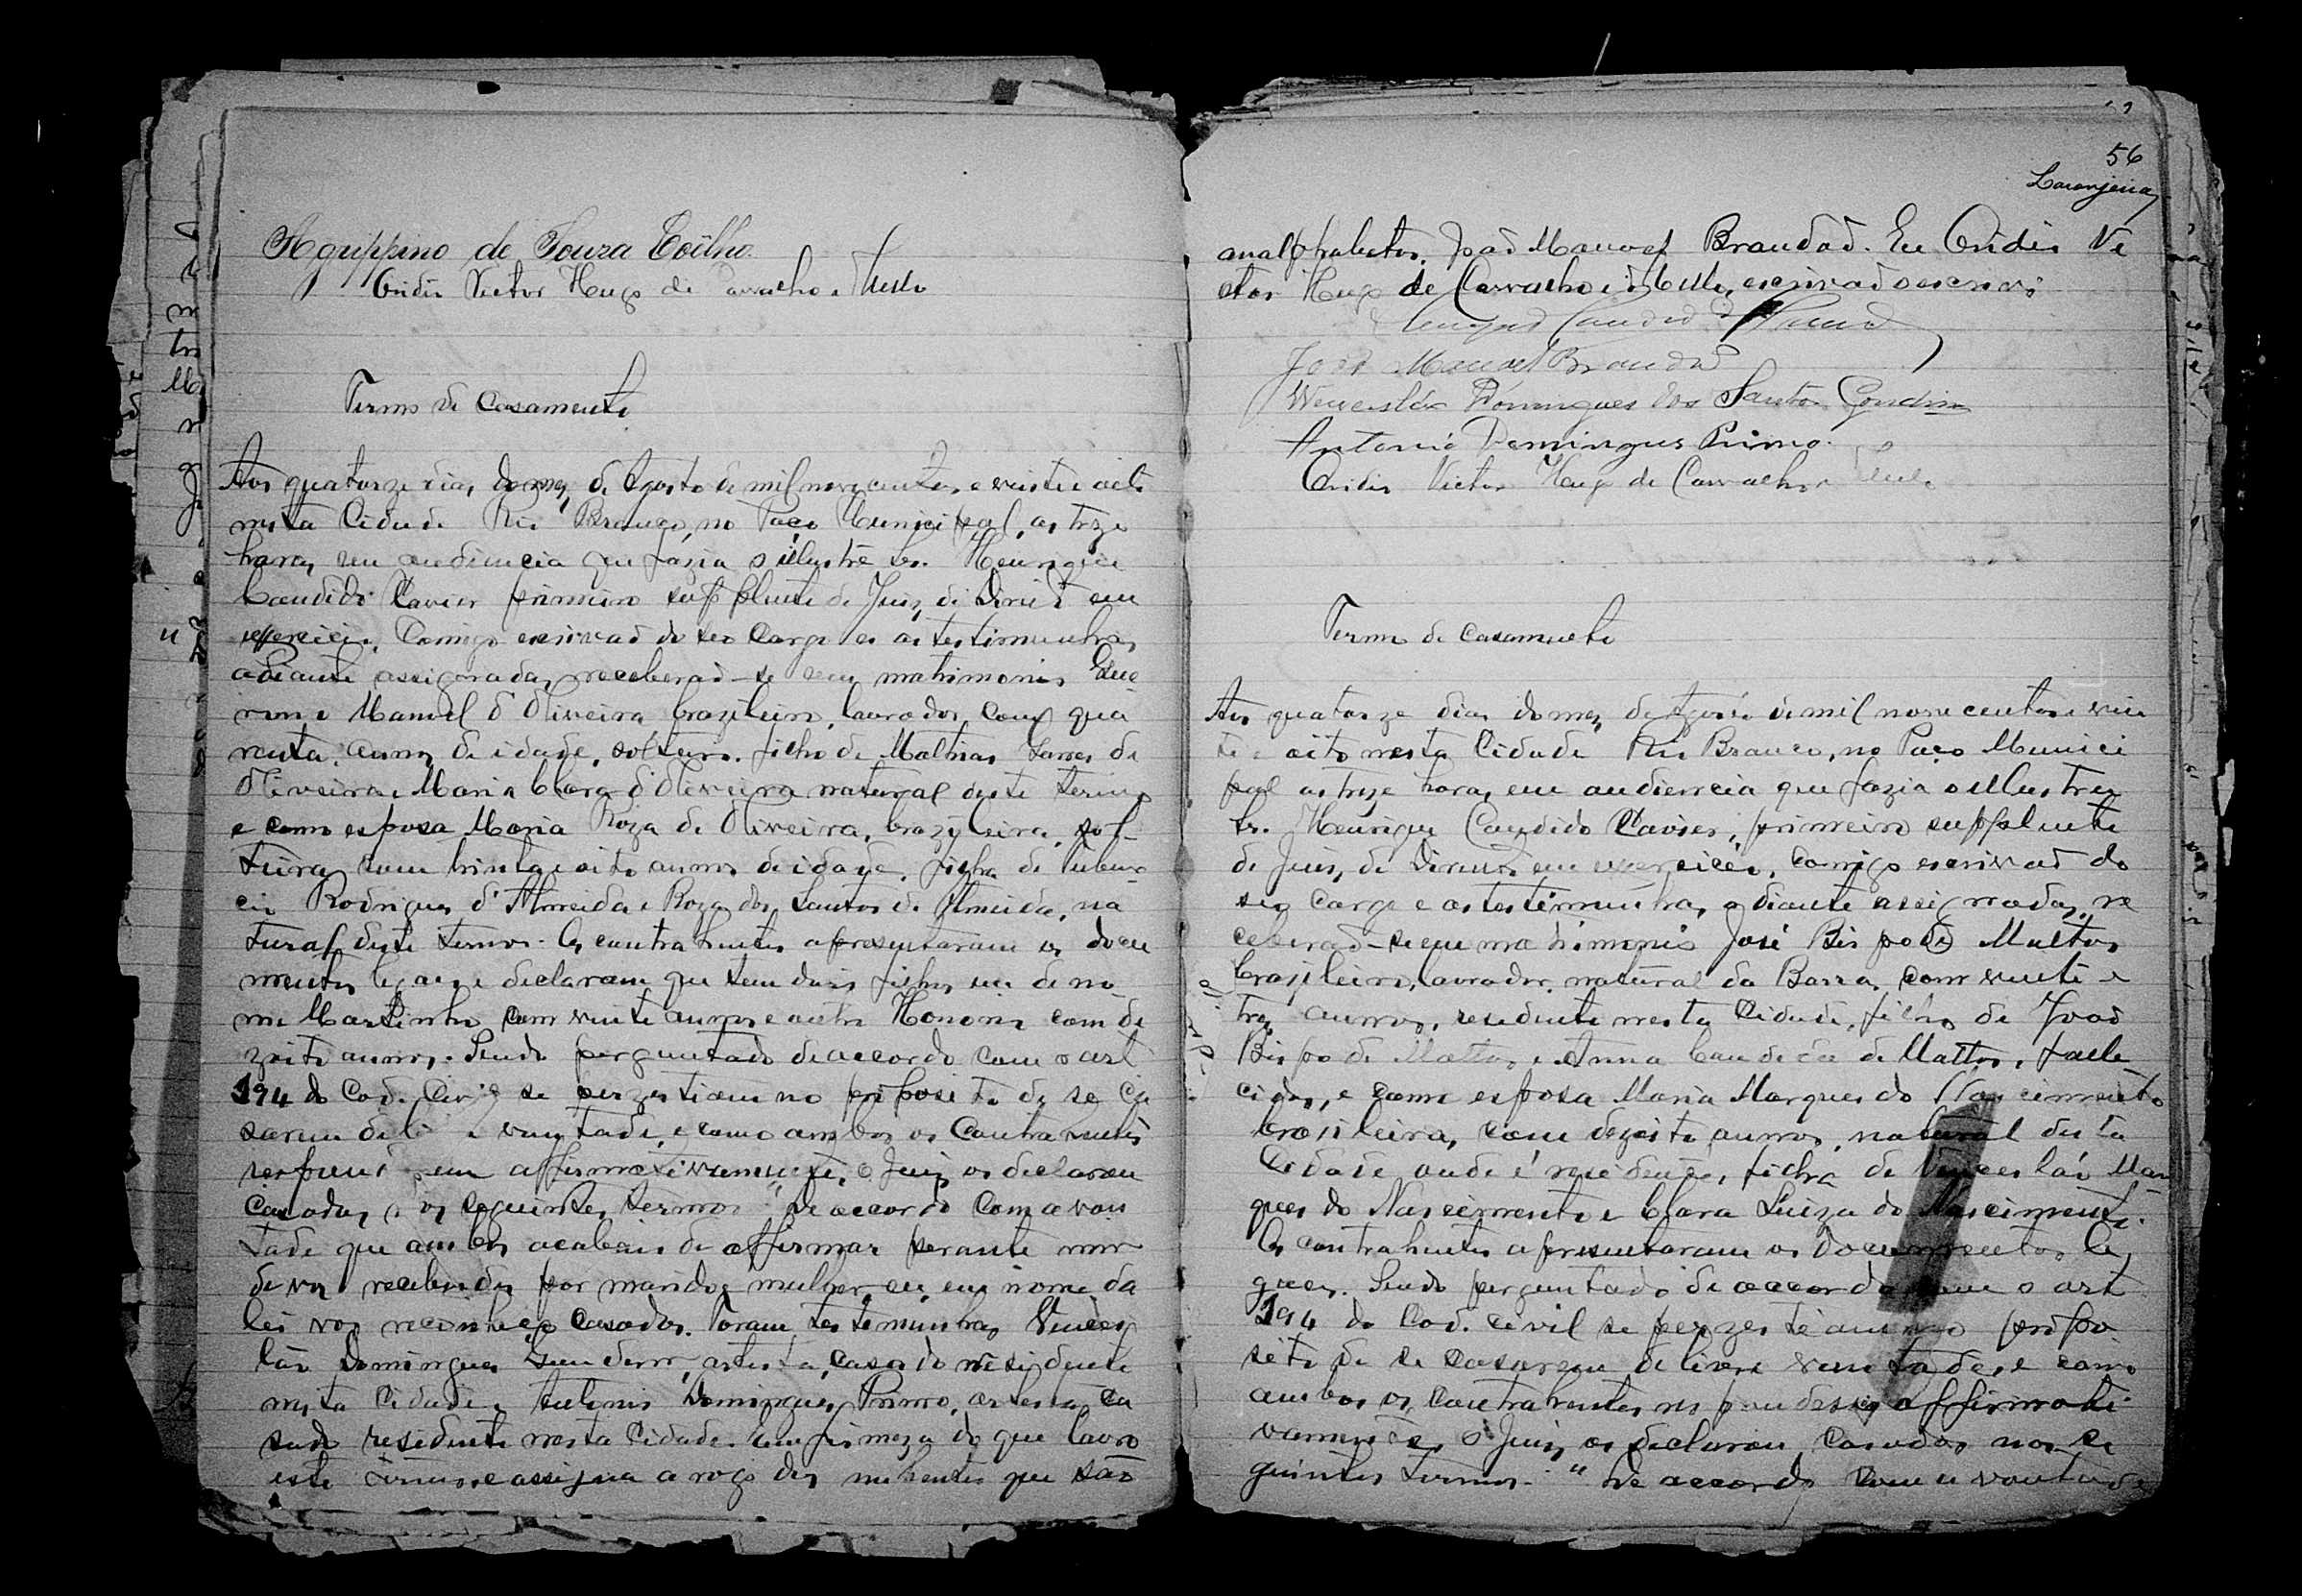 Agrippino de Souza Coêlho.
Ovidio Victor Hugo de Carvalho e Mello
Termo de Casamento
Aos quatorze dias do mez de Agosto de mil nove centos e vinte e oito
nesta Cidade Rio Branco, no Paço Municipal, as treze
horas, em audiencia que fazia o illustre Sr. Henrique
Candido Xavier primeiro supplente de Juiz de Direito em
exercicio, Comigo escrivão do seo cargo e as testimunhas
adiante assignadas, receberão-se em matrimonio
Manoel d'Oliveira brazileiro, lavrador, com qua
renta annos de idade, solteiro. filho de Mathias de
Oliveira e Maria Clara d'Oliveira natural deste termo
e como esposa Maria Roza de Oliveira, brazileira, sol-
teira, com trinta e oito annos de idade, filha de
Rodrigues d'Almeida e Roza dos Santos de Almeida, na
tural deste termo. Os contrahentes apresentaram os docu
mentos legaes e declaram que tem dois filhos, um de no
me Martinho com vinte annos e outro Honorio com de
zoito annos. Sendo perguntado de accordo com o art
194 do Cod. Civil se perzestiam no proposito de se ca
sarem de livre vontade, e como ambos os Contrahentes
respondessem affirmativamente, o Juiz os declarou
Casados, nos seguintes termos "De accordo com a von
tade que ambos acabais de affirmar perante mim
de vos receberdes por marido e mulher, eu, em nome da
lei vos reconheço casados. Foram testemunhas Vences
láo Domingues artista, casado residente
nesta Cidade e Antonio Domingues Primo, artista, ca
sado residente nesta Cidade. Em firmeza do que lavro
este termo e assigna a rogo dos nubentes que são
56
Laranjeira
analphabetos, João Manoel Brandão. Eu Ovidio Vi
ctor Hugo de Carvalho e Mello, escrivão o escrevi
Henrique Candido Xavier
João Manoel Brandão
Wenceslão Domingues dos Santos Gondim
Antonio Domingues Primo.
Ovidio Victor Hugo de Carvalho e Mello
Termo de Casamento
Aos quatorze dias do mez de Agosto de mil nove centos e vin
te e oito nesta Cidade Rio Branco, no Paço Munici
pal as treze horas, em audiencia que fazia o illustre
Sr. Henrique Candido Xavier, primeiro supplente
de Juiz de Direito em exercicio, comigo escrivão do
seo cargo e as testimunhas adiante assignadas, re
ceberão-se em matrimonio José Bispo de Mattos
brazileiro, lavrador, natural da Barra, com vinte e
tres annos, residente nesta Cidade, filho de João
Bispo de Mattos e Anna Candida de Mattos, falle
cidos, e como esposa Maria Marques do Nascimento
brasileira, com dezoito annos, natural desta
Cidade onde é residente, filha de Venceslão Mar
ques do Nascimento e Clara Luiza do Nascimento.
Os contrahentes apresentaram os documentos le
gaes. Sendo perguntado de accordo com o art
194 do Cod. civil se perzestiam no propo
sito de se casarem de livre vontade, e como
ambos os contrahentes respondessem affirmati
vamente, o Juiz os declarou Casados nos se
guintes termos. "De accordo com a vontade